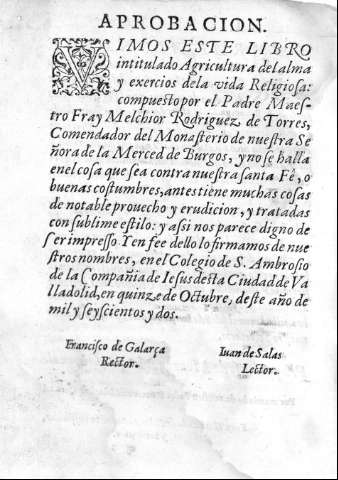 APROBACION.
VIMOS ESTE LIBRO
intitulado Agricultura del alma
y exercios dela vida Religiosa:
compuesto por el Padre Maes-
tro Fray Melchior Rodriguez de Torres,
Comendador del Monasterio de nuestra Se
ñora de la Merced de Burgos, y no se halla
en el cosa que sea contra nuestra santa Fè, o
buenas costumbres, antes tiene muchas cosas
de notable prouecho y erudicion, y tratadas
con sublime estilo: y assi nos parece digno de
ser impresso Yen fee dello lo firmamos de nue
stros nombres, en el Colegio de S. Ambrosio
de la Compañia de Iesus desta Ciudad de Va
lladolid, en quinze de Octubre, deste año de
mil y seyscientos y dos.
Francisco de Galarça
Rector.
Iuan de Salas
Lector.